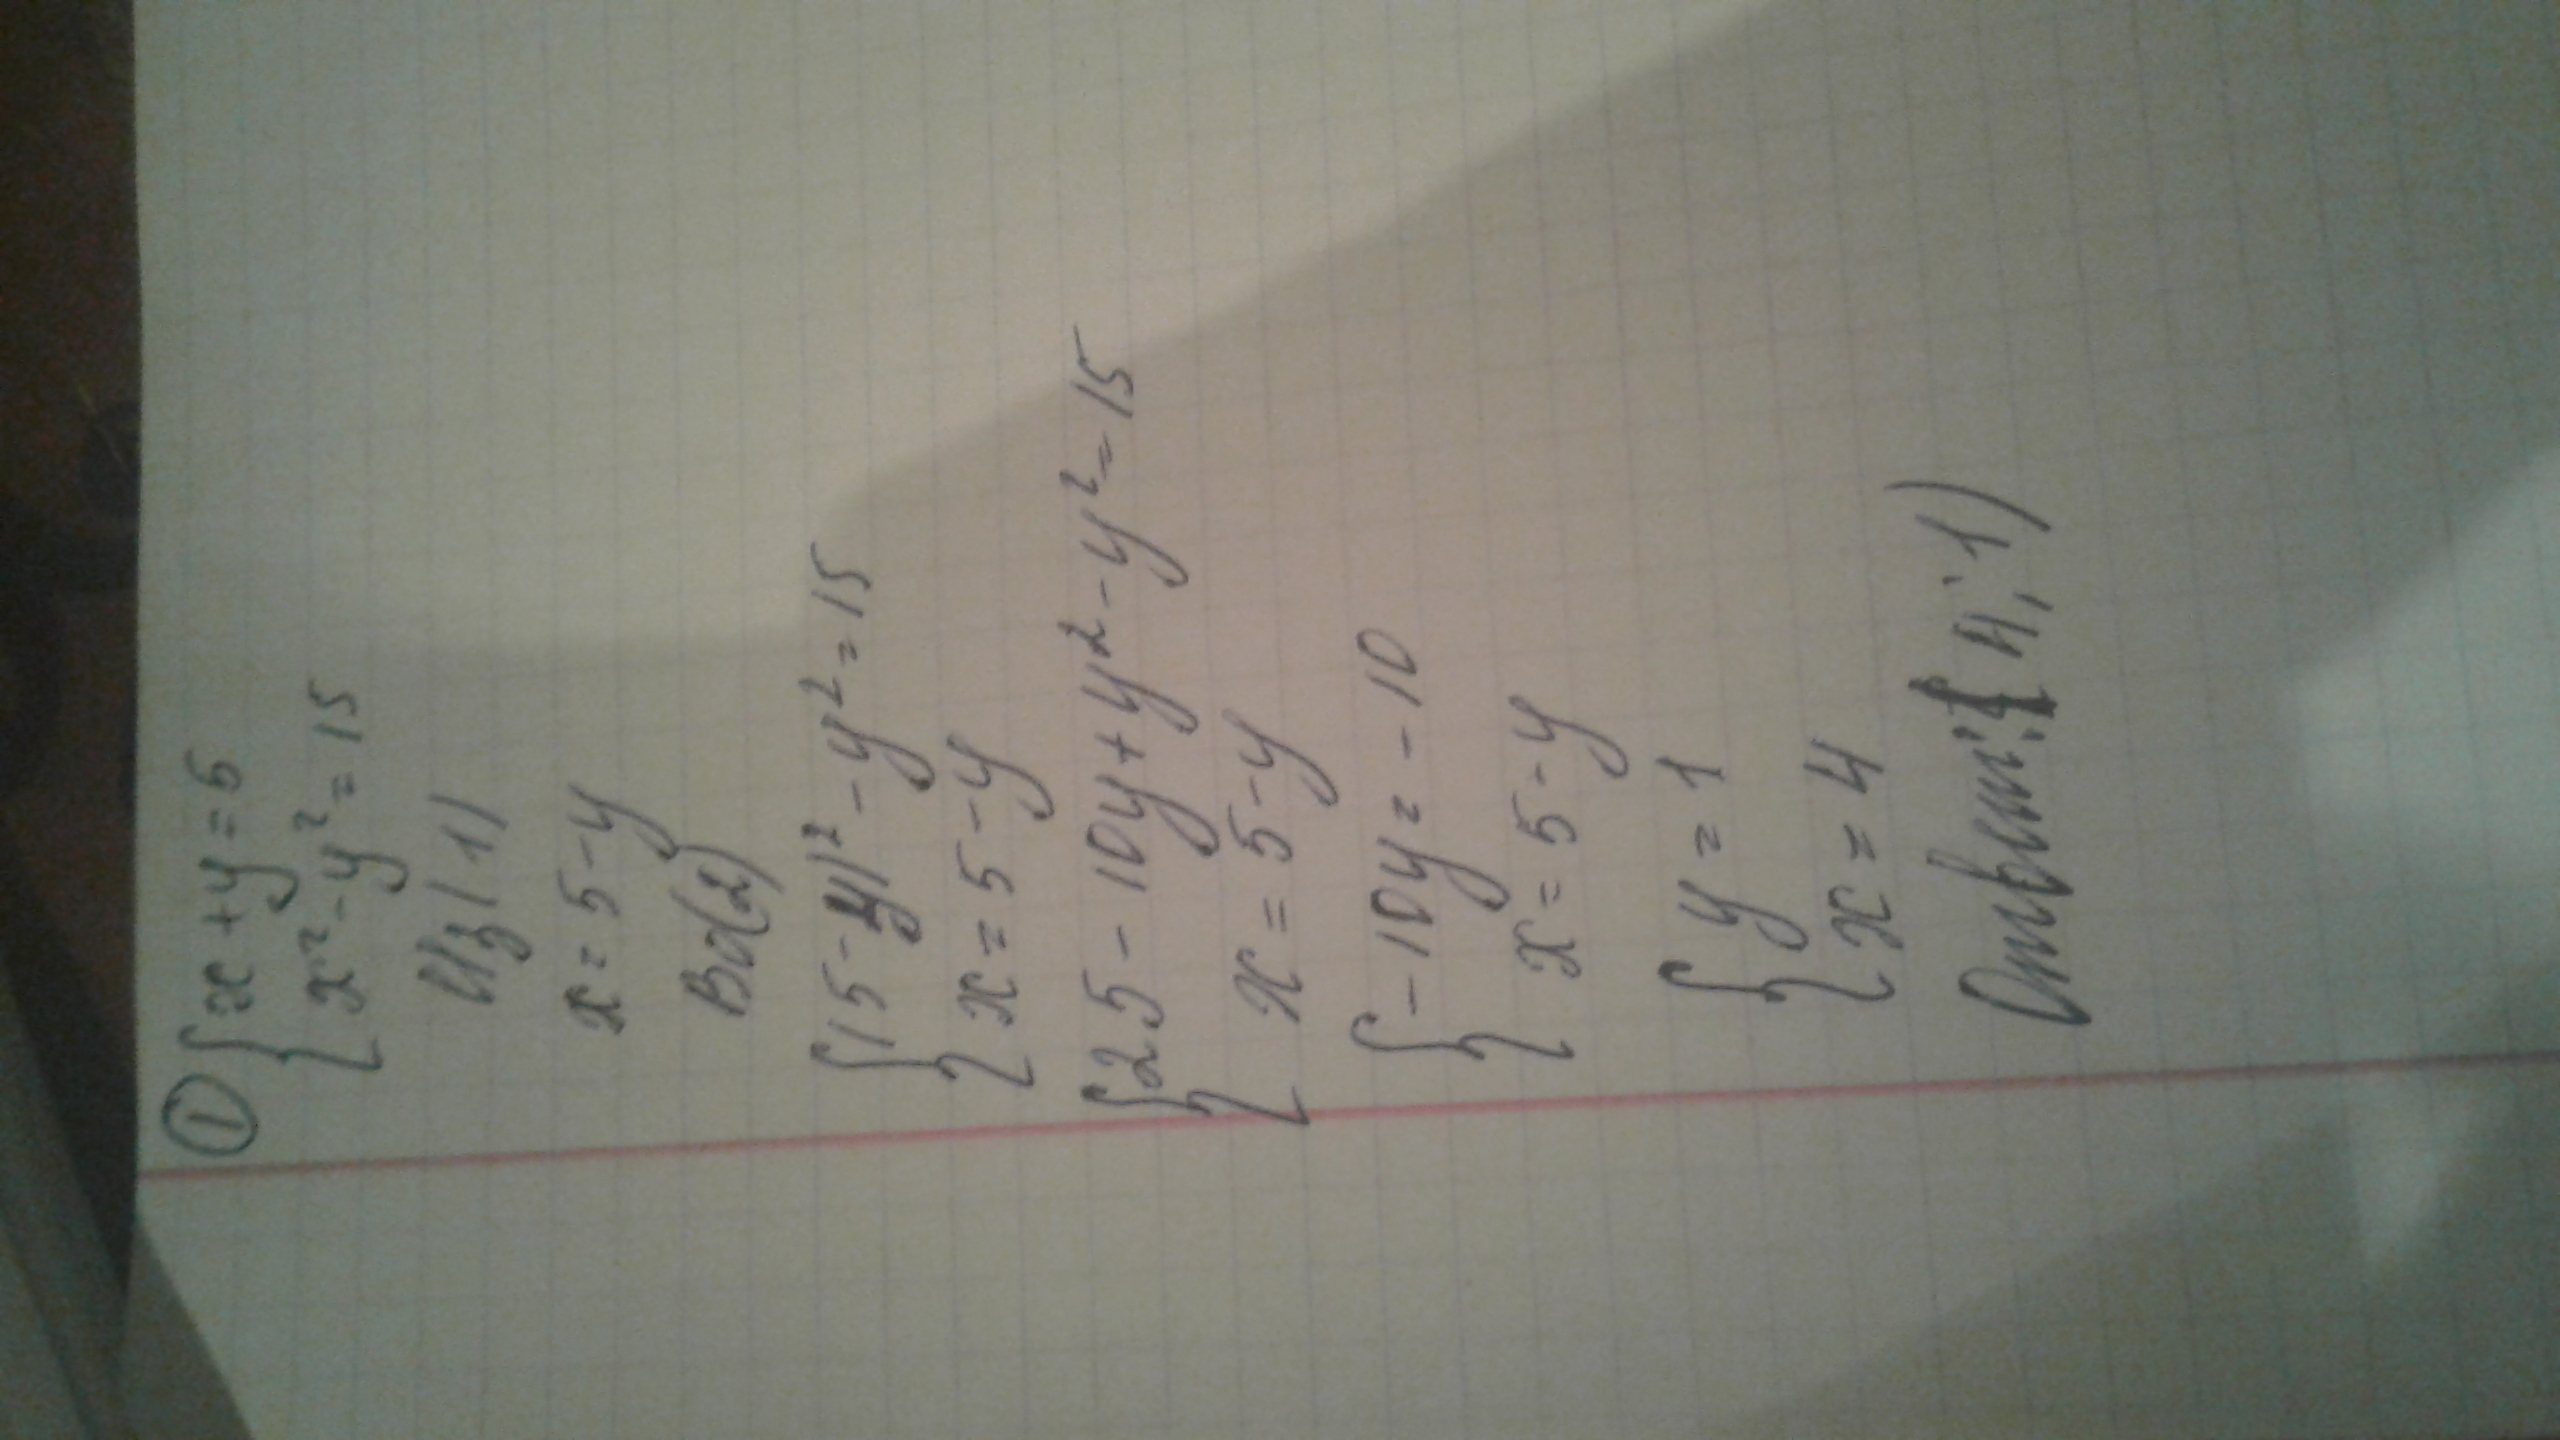 ① { x + y = 5
x² - y² = 15
Из (1)
x = 5 - y
В (2)
{ (5 - y)² - y² = 15
x = 5 - y
{ 25 - 10y + y² - y² = 15
x = 5 - y
{ -10y = -10
x = 5 - y
{ y = 1
x = 4
Ответ: (4; 1)